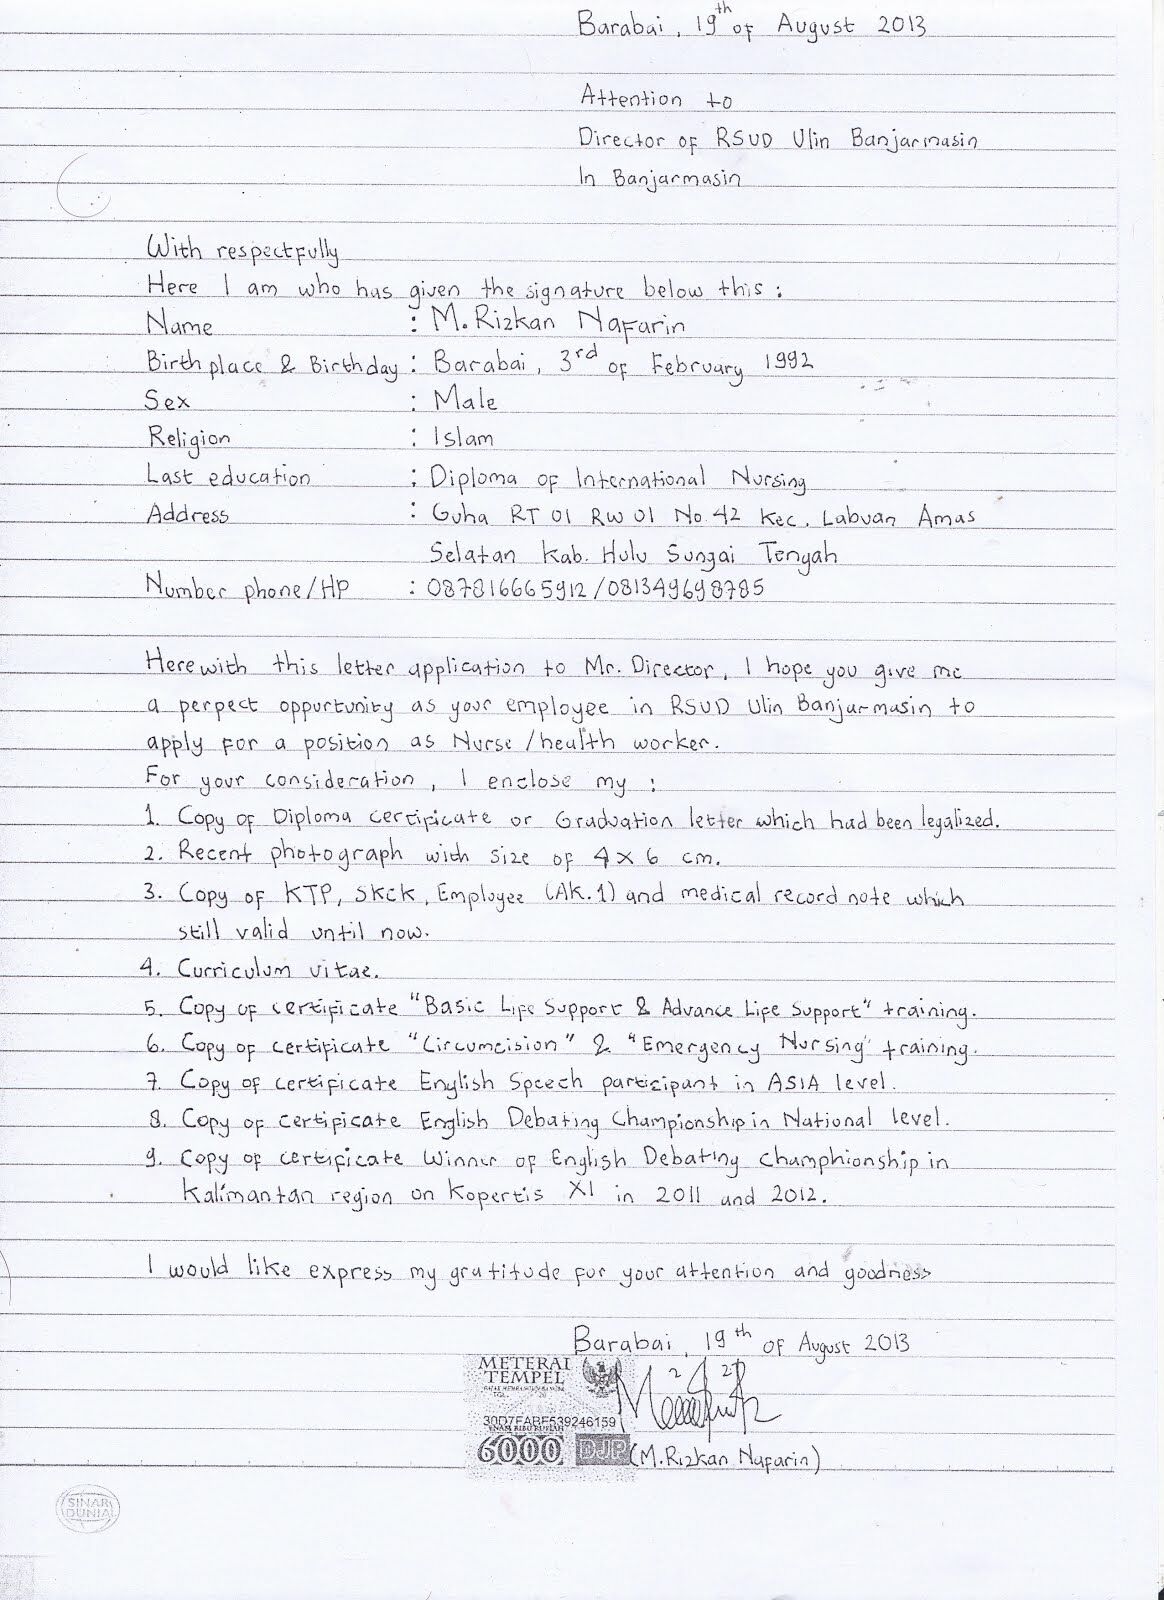 Barabai, 19th of August 2013
Attention to
Director of RSUD Ulin Banjarmasin
In Banjarmasin
With respectfully
Here I am who has given the signature below this :
Name : M. Rizkan Nafarin
Birth place & Birthday : Barabai, 3rd of February 1992
Sex : Male
Religion : Islam
Last education : Diploma of International Nursing
Address : Guha RT 01 RW 01 No. 42 Kec. Labuan Amas
Selatan Kab. Hulu Sungai Tengah
Number phone/HP : 087816665912 / 081349698785
Herewith this letter application to Mr. Director, I hope you give me
a perpect oppurtunity as your employee in RSUD Ulin Banjarmasin to
apply for a position as Nurse / health worker.
For your consideration, I enclose my :
1. Copy of Diploma certificate or Graduation letter which had been legalized.
2. Recent photograph with size of 4 x 6 cm.
3. Copy of KTP, SKCK, Employee (AK.1) and medical record note which
still valid until now.
4. Curriculum vitae.
5. Copy of certificate "Basic Life Support & Advance Life Support" training.
6. Copy of certificate "Circumcision" & "Emergency Nursing" training.
7. Copy of certificate English Speech participant in ASIA level.
8. Copy of certificate English Debating Championship in National level.
9. Copy of certificate Winner of English Debating Champhionship in
Kalimantan region on Kopertis XI in 2011 and 2012.
I would like express my gratitude for your attention and goodness
Barabai, 19th of August 2013
METERAI
TEMPEL
30D7FABF539246159
ENAM RIBU RUPIAH
6000 DJP
(M. Rizkan Nafarin)
SINAR
DUNIA